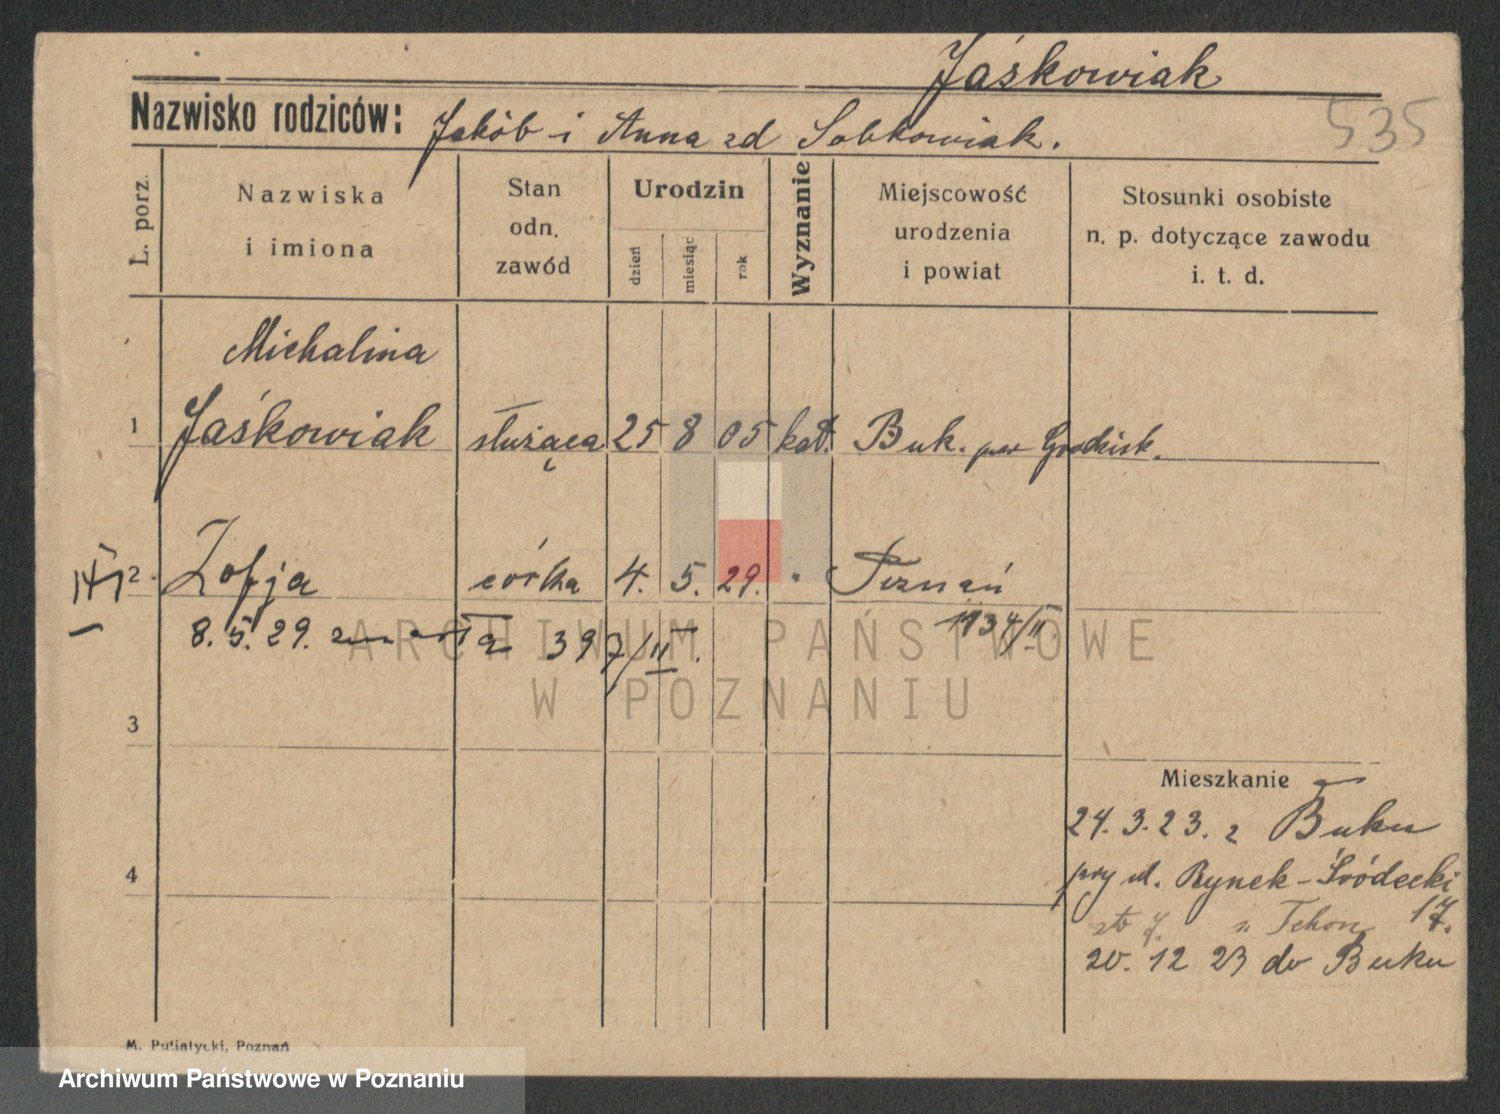 Jaśkowiak
Nazwisko rodziców: Jakób i Anna zd Sobkowiak.
535
L. porz.
Nazwiska i imiona
Stan odn. zawód
Urodzin
dzień
miesiąc
rok
Wyznanie
Miejscowość urodzenia i powiat
Stosunki osobiste n. p. dotyczące zawodu i. t. d.
Michalina
1 Jaśkowiak służąca 25 8 05 kat. Buk. pow Grodzisk.
2 Zofja córka 4. 5. 29. Poznań
8. 5. 29. zmarła 397/II. 1934/II.
3
ARCHIWUM PAŃSTWOWE
W POZNANIU
Mieszkanie
24. 3. 23. z Buku
przy ul. Rynek-Śródecki
17.
4
20. 12 23 do Buku
M. Putiatycki, Poznań
Archiwum Państwowe w Poznaniu